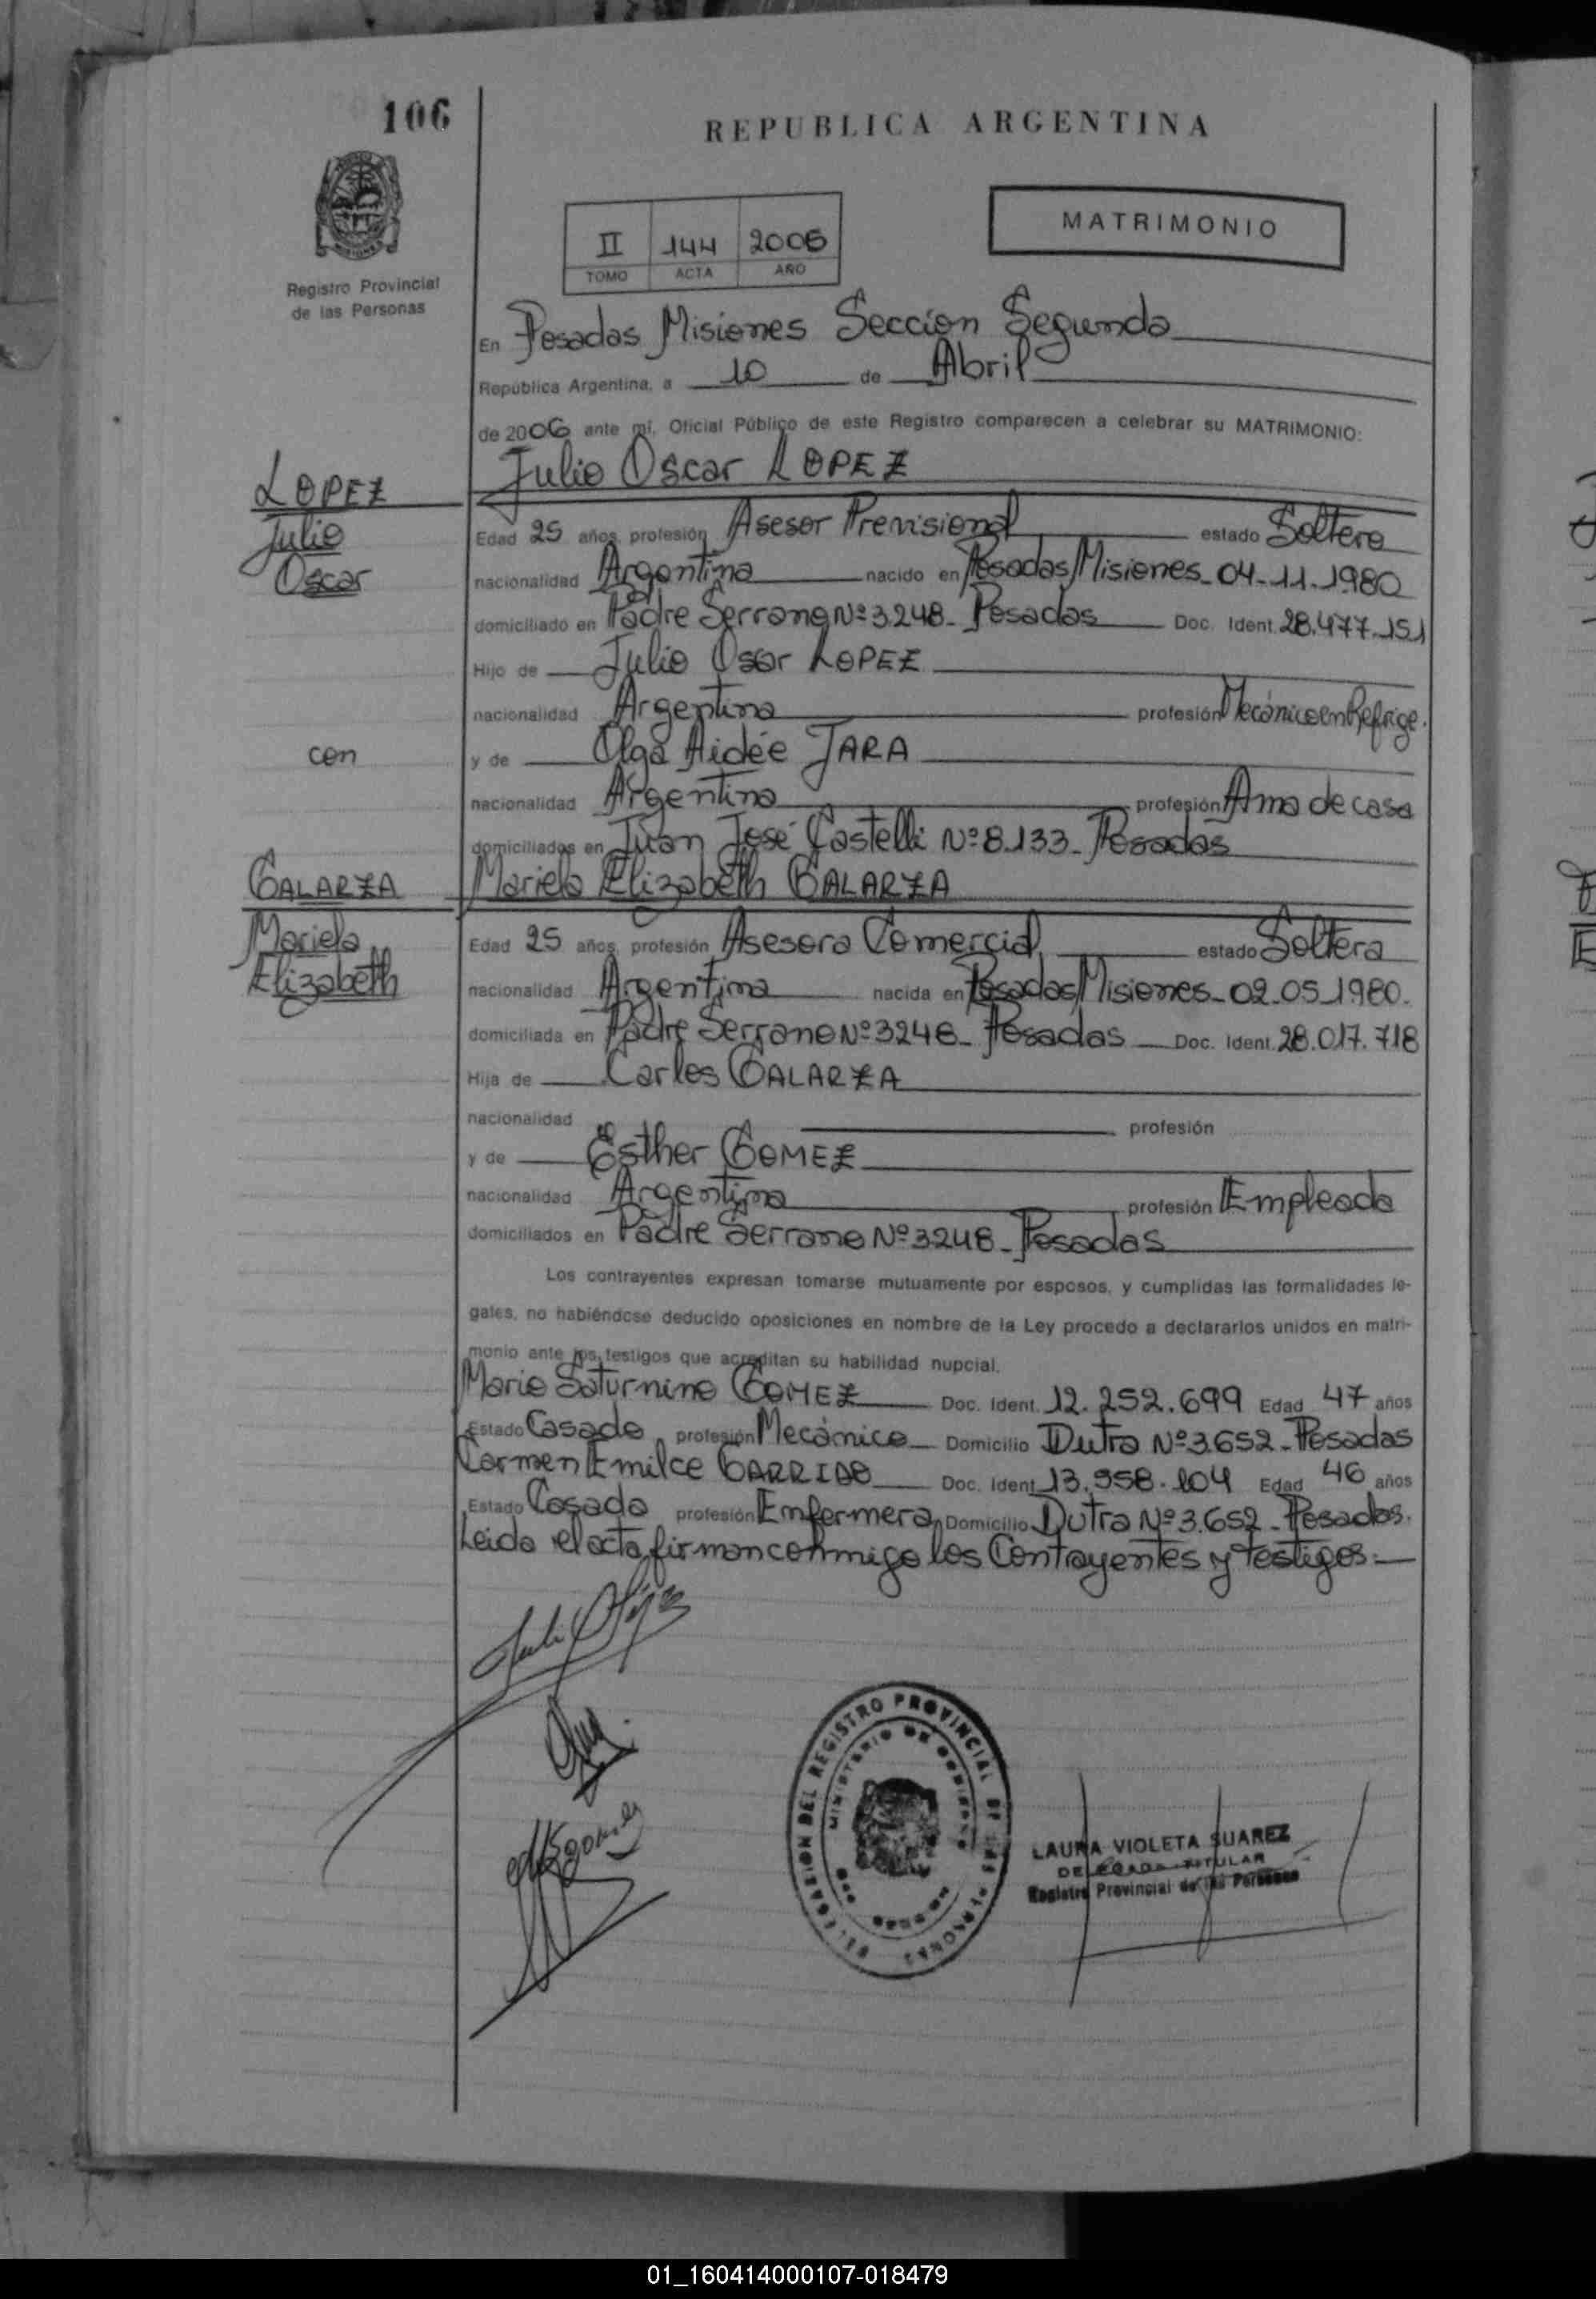 106
REPUBLICA ARGENTINA
MATRIMONIO
II 144 2006
TOMO ACTA AÑO
Registro Provincial
de las Personas
En Posadas Misiones Sección Segunda
República Argentina, a 10 de Abril
de 2006 ante mí, Oficial Público de este Registro comparecen a celebrar su MATRIMONIO:
LOPEZ
Julio
Oscar
Julio Oscar LOPEZ
Edad 25 años, profesión Asesor Previsional estado Soltero
nacionalidad Argentina nacido en Posadas Misiones - 04-11-1980
domiciliado en Padre Serrano Nº 3248 - Posadas Doc. Ident. 28.477.151
Hijo de Julio Oscar LOPEZ
nacionalidad Argentina profesión Mecánico en Refrige.
con
y de Olga Aidée JARA
nacionalidad Argentina profesión Ama de casa
domiciliados en Juan José Castelli Nº 8133 - Posadas
GALARZA
Mariela
Elizabeth
Mariela Elizabeth GALARZA
Edad 25 años, profesión Asesora Comercial estado Soltera
nacionalidad Argentina nacida en Posadas Misiones - 02-05-1980.
domiciliada en Padre Serrano Nº 3248 - Posadas Doc. Ident. 28.017.718
Hija de Carlos GALARZA
nacionalidad profesión
y de Esther GOMEZ
nacionalidad Argentina profesión Empleada
domiciliados en Padre Serrano Nº 3248 - Posadas
Los contrayentes expresan tomarse mutuamente por esposos, y cumplidas las formalidades le-
gales, no habiéndose deducido oposiciones en nombre de la Ley procedo a declararlos unidos en matri-
monio ante los testigos que acreditan su habilidad nupcial.
Mario Saturnino GOMEZ Doc. Ident. 12.252.699 Edad 47 años
Estado Casado profesión Mecánico Domicilio Dutra Nº 3.652 - Posadas
Carmen Emilce GARRIDO Doc. Ident. 13.558.104 Edad 46 años
Estado Casada profesión Enfermera Domicilio Dutra Nº 3.652 - Posadas.
Leida el acta, firman conmigo los Contayentes y testigos.-
DELEGACION DEL REGISTRO PROVINCIAL DE LAS PERSONAS
MINISTERIO DE GOBIERNO
LAURA VIOLETA SUAREZ
DELEGADA TITULAR
Registro Provincial de las Personas
01_160414000107-018479